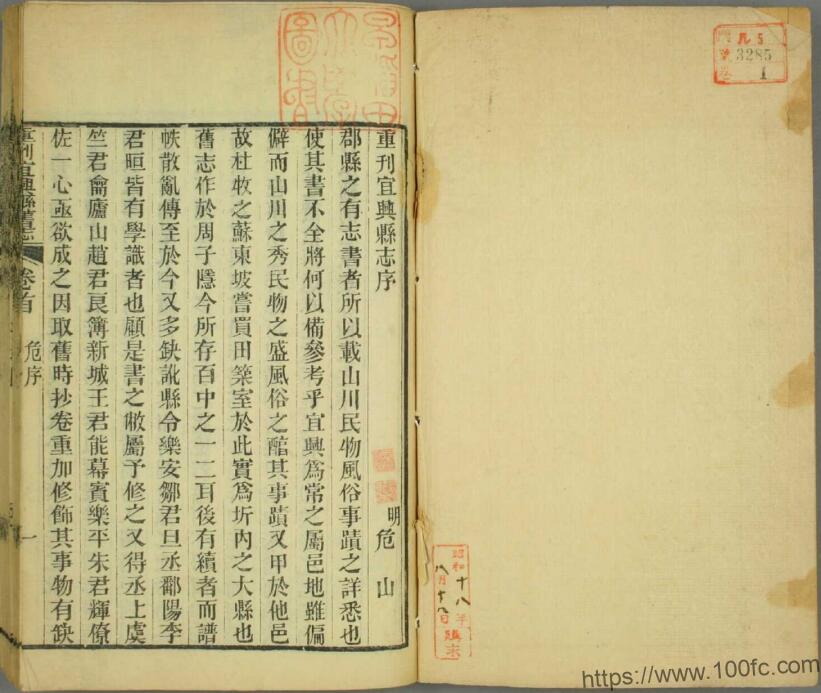 重刊宜興縣志序
明 危山
郡縣之有志書者所以載山川民物風俗事蹟之詳悉也
使其書不全將何以備參考乎宜興爲常之屬邑地雖偏
僻而山川之秀民物之盛風俗之醇其事蹟又甲於他邑
故杜牧之蘇東坡嘗買田築室於此實爲圻內之大縣也
舊志作於周子隱今所存百中之一二耳後有續者而譜
帙散亂傳至於今又多缺訛縣令樂安鄒君旦丞鄱陽李
君晅皆有學識者也顧是書之敝屬予修之又得丞上虞
竺君侖廬山趙君良簿新城王君能幕賓樂平朱君輝僚
佐一心亟欲成之因取舊時抄卷重加修飾其事物有缺
重刊宜興縣舊志
卷首
危序
一
九 5
3285
1
昭和十八年
八月十九日購求
https://www.100fc.com